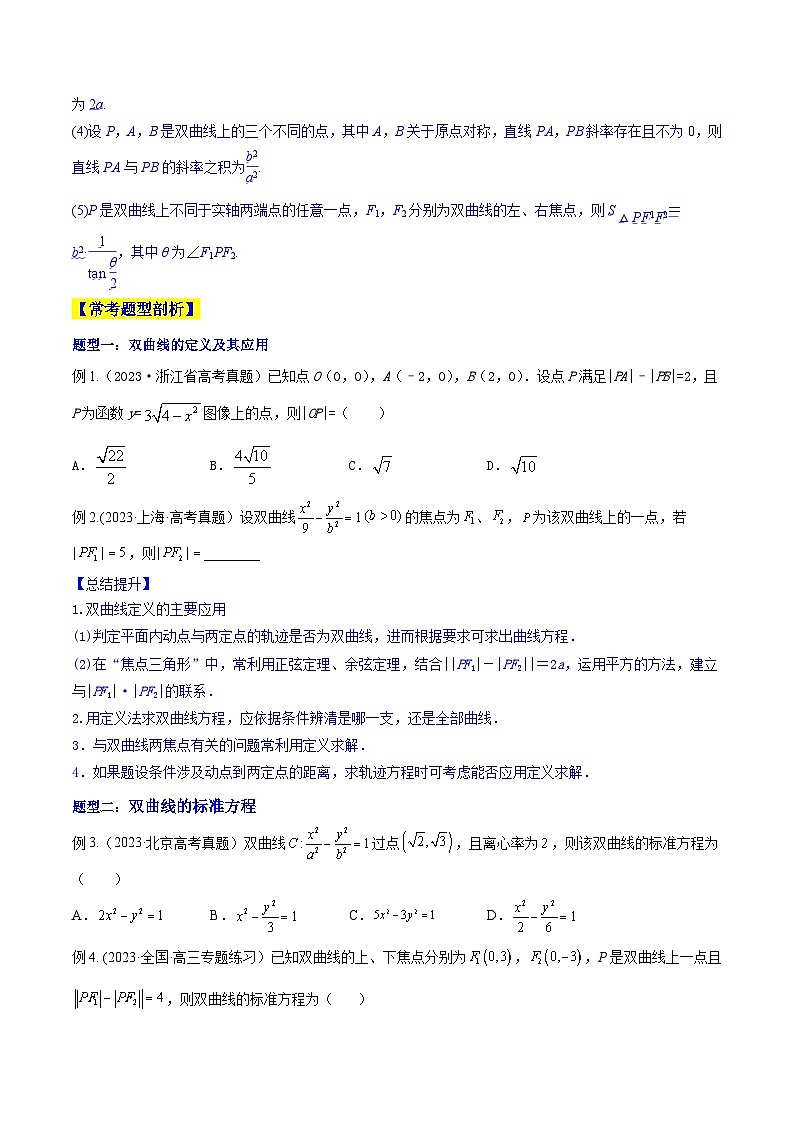 为 2a.
(4)设 P，A，B 是双曲线上的三个不同的点，其中 A，B 关于原点对称，直线 PA，PB 斜率存在且不为 0，则
直线 PA 与 PB 的斜率之积为 b²/a².
(5)P 是双曲线上不同于实轴两端点的任意一点，F₁，F₂ 分别为双曲线的左、右焦点，则 S△PF₁F₂＝
b²·1/tan(θ/2)，其中 θ 为∠F₁PF₂.
【常考题型剖析】
题型一：双曲线的定义及其应用
例 1.（2023·浙江省高考真题）已知点 O（0，0），A（﹣2，0），B（2，0）．设点 P 满足|PA|﹣|PB|=2，且
P 为函数 y=3√(4−x²) 图像上的点，则|OP|=（　　）
A．√22/2　B．4√10/5　C．√7　D．√10
例 2.(2023·上海·高考真题）设双曲线 x²/9−y²/b²=1(b>0) 的焦点为 F₁、F₂，P 为该双曲线上的一点，若
|PF₁|=5，则|PF₂|=________
【总结提升】
1.双曲线定义的主要应用
(1)判定平面内动点与两定点的轨迹是否为双曲线，进而根据要求可求出曲线方程．
(2)在“焦点三角形”中，常利用正弦定理、余弦定理，结合||PF₁|－|PF₂||＝2a，运用平方的方法，建立
与|PF₁|·|PF₂|的联系．
2.用定义法求双曲线方程，应依据条件辨清是哪一支，还是全部曲线．
3．与双曲线两焦点有关的问题常利用定义求解．
4．如果题设条件涉及动点到两定点的距离，求轨迹方程时可考虑能否应用定义求解．
题型二：双曲线的标准方程
例 3.（2023·北京高考真题）双曲线 C:x²/a²−y²/b²=1 过点 (√2,√3)，且离心率为 2，则该双曲线的标准方程为
（　　）
A．2x²−y²=1　B．x²−y²/3=1　C．5x²−3y²=1　D．x²/2−y²/6=1
例 4. (2023·全国·高三专题练习）已知双曲线的上、下焦点分别为 F₁(0,3)，F₂(0,−3)，P 是双曲线上一点且
||PF₁|−|PF₂||=4，则双曲线的标准方程为（　　）